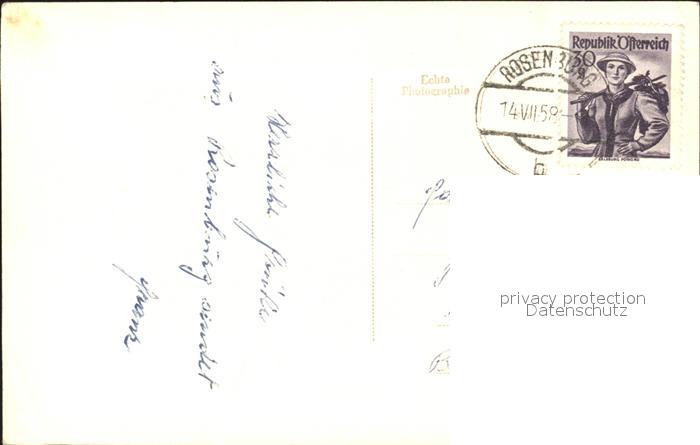 Herzliche Grüße
aus Rosenburg sendet
Franz
Echte
Photographie
ROSENBURG
14.VII.58
b
Republik Österreich
30
SALZBURG PONGAU
privacy protection
Datenschutz